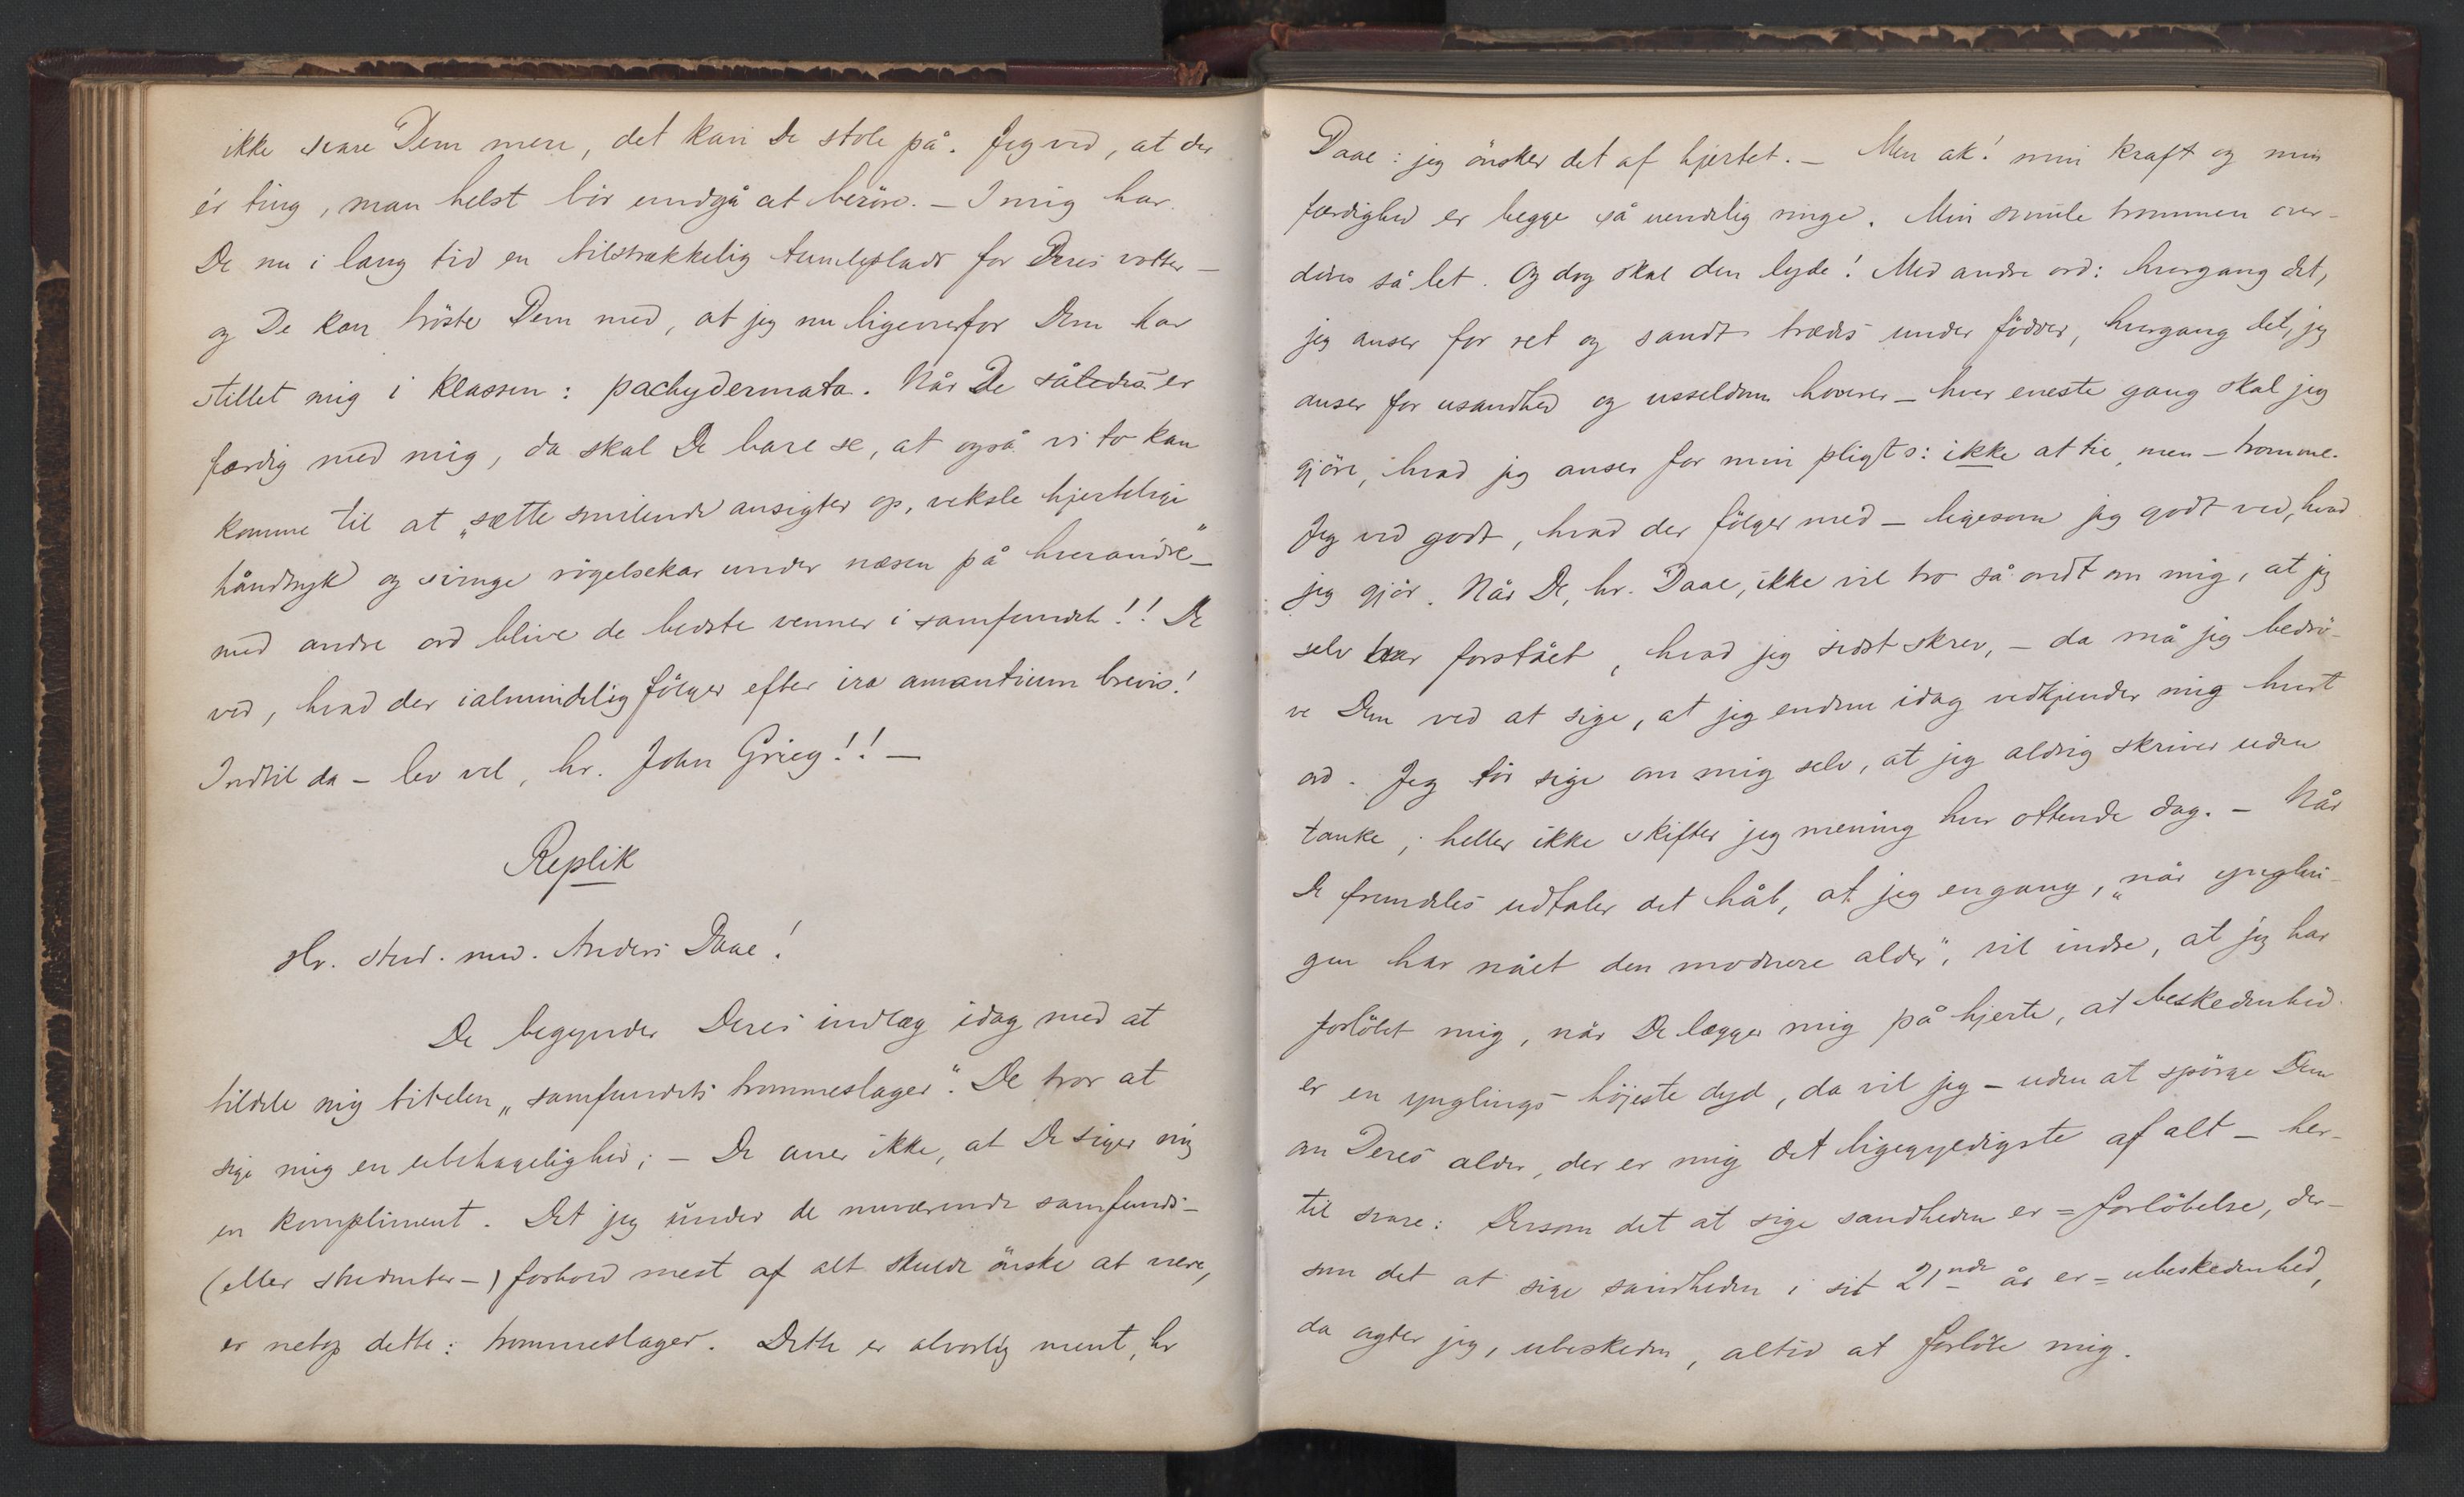 ikke svare Dem mere, det kan De stole på. Jeg ved, at der
ér ting, man helst bör undgå at beröre. — I mig har
De nu i lang tid en tilstrækkelig tumleplads for Deres rotter —
og De kan tröste Dem med, at jeg nu ligeoverfor Dem har
stillet mig i klassen: pachydermata. Når De således er
færdig med mig, da skal De bare se, at også vi to kan
komme til at „sætte smilende ansigter op, veksle hjertelige
håndtryk og svinge rögelsekar under næsen på hverandre" —
med andre ord blive de bedste venner i samfundet!! De
ved, hvad der ialmindelig fölger efter ira amantium brevis!
Indtil da — lev vel, hr. John Grieg!! —
Replik
Hr. stud. med. Anders Daae!
De begynder Deres indlæg idag med at
tildele mig titelen „samfundets trommeslager". De tror at
sige mig en ubehagelighed; — De aner ikke, at De siger mig
en kompliment. Det jeg under de nuværende samfunds-
(eller studenter-) forhold mest af alt skulde önske at være,
er netop dette: trommeslager. Dette er alvorlig ment, hr
Daae: jeg önsker det af hjertet. — Men ak! min kraft og min
færdighed er begge så uendelig ringe. Min smule trommen over-
döves så let. Og dog skal den lyde! Med andre ord: hvergang det,
jeg anser for ret og sandt trædes under födder, hvergang det, jeg
anser for usandhed og usseldom hoverer — hver eneste gang skal jeg
gjöre, hvad jeg anser for min pligt ɔ: ikke at tie, men — tromme.
Jeg ved godt, hvad der fölger med — ligesom jeg godt ved, hvad
jeg gjör. Når De, hr. Daae, ikke vil tro så ondt om mig, at jeg
selv har forstået, hvad jeg sidst skrev, — da må jeg bedrö-
ve Dem ved at sige, at jeg endnu idag vedkjender mig hvert
ord. Jeg tör sige om mig selv, at jeg aldrig skriver uden
tanke; heller ikke skifter jeg mening hver ottende dag. — Når
De fremdeles udtaler det håb, at jeg engang, „når ynglin-
gen har nået den modnere alder", vil indse, at jeg har
forlöbet mig, når De lægger mig på hjerte, at beskedenhed
er en ynglings höjeste dyd, da vil jeg — uden at spörge Dem
om Deres alder, der er mig det ligegyldigste af alt — her-
til svare: Dersom det at sige sandheden er = forlöbelse, der-
som det at sige sandheden i sit 21nde år er = ubeskedenhed,
da agter jeg, ubeskeden, altid at forlöbe mig.